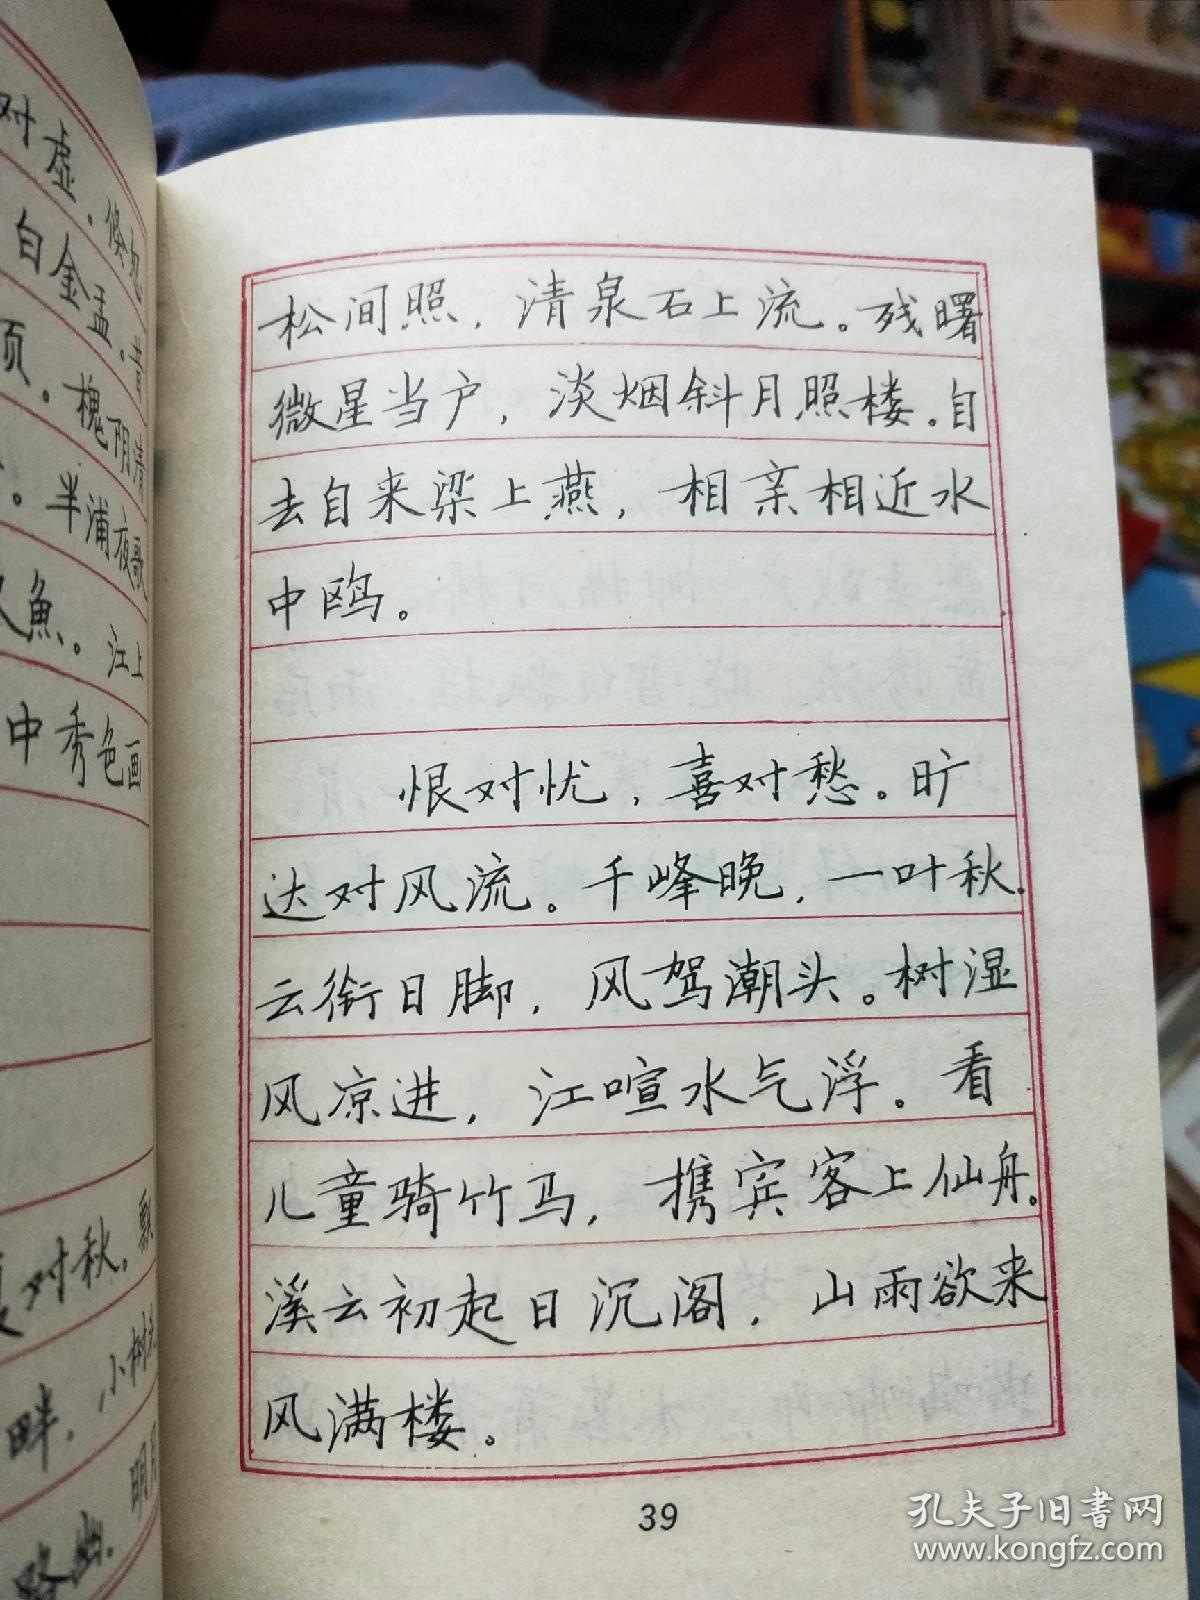 对虚。倏忽
白金盂。青
页。槐阴
。半浦夜歌
鱼。江上
中秀色画
对秋，飘
畔，小树
明月
路幽。
松间照，清泉石上流。残曙
微星当户，淡烟斜月照楼。自
去自来梁上燕，相亲相近水
中鸥。
恨对忧，喜对愁。旷
达对风流。千峰晚，一叶秋。
云衔日脚，风驾潮头。树湿
风凉进，江喧水气浮。看
儿童骑竹马，携宾客上仙舟。
溪云初起日沉阁，山雨欲来
风满楼。
39
孔夫子旧书网
www.kongfz.com